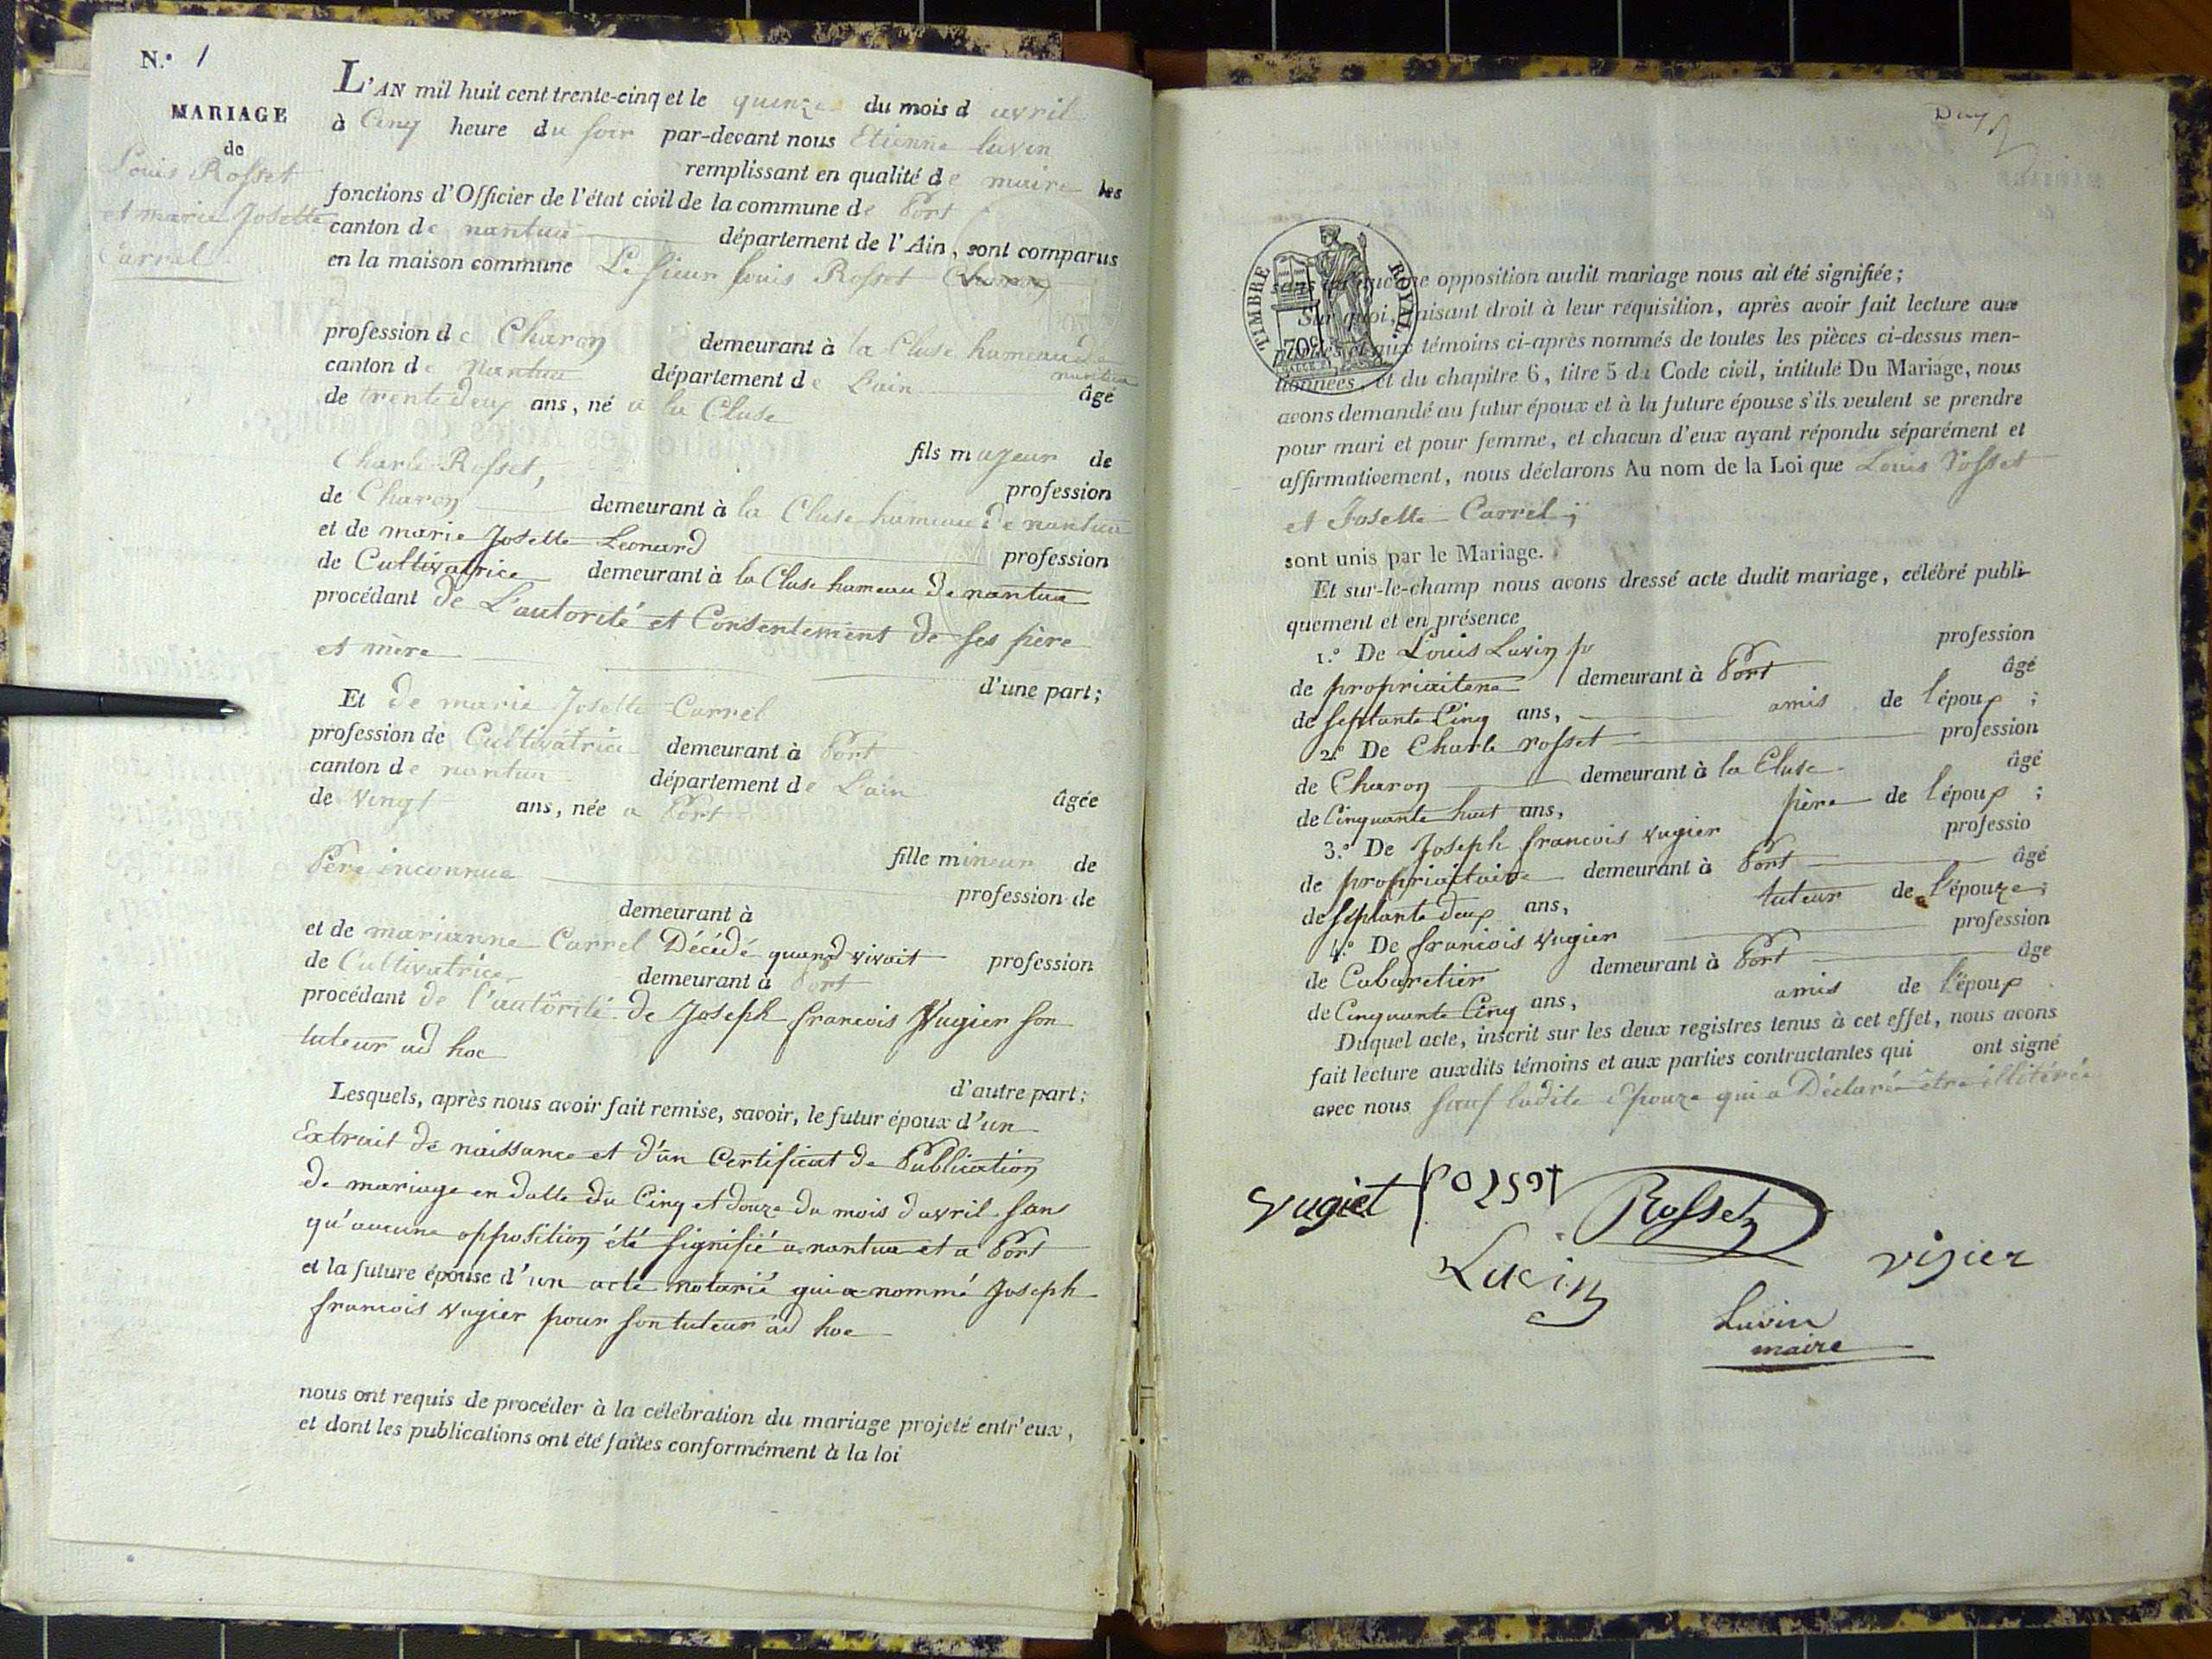 N.° 1
MARIAGE
de
Louis Rosset
et marie Josette
Carrel
L'AN mil huit cent trente-cinq et le quinze du mois d avril
à Cinq heure du soir par-devant nous Etienne Luvin
remplissant en qualité de maire les
fonctions d'Officier de l'état civil de la commune de Port
canton de nantua département de l'Ain, sont comparus
en la maison commune Le sieur Louis Rosset
profession de Charon demeurant à la Cluse hameau de
nantua
canton de Nantua département de Lain âgé
de trente deux ans, né a la Cluse
fils majeur de
Charle Rosset, profession
de Charon demeurant à la Cluse hameau de nantua
et de marie Josette Leonard profession
de Cultivatrice demeurant à la Cluse hameau de nantua
procédant de L'autorité et Consentement de ses père
et mère
d'une part;
Et de marie Josette Carrel
profession de Cultivatrice demeurant à Port
canton de nantua département de Lain âgée
de vingt ans, née a Port
fille mineur de
Père inconnue profession de
demeurant à
et de marianne Carrel Décédé quand vivait profession
de Cultivatrice demeurant à Port
procédant de l'autorité de Joseph francois Vugier son
tuteur ad hoc
d'autre part;
Lesquels, après nous avoir fait remise, savoir, le futur époux d'un
Extrait de naissance et d'un Certificat de Publication
de mariage en datte du Cinq et douze du mois davril sans
qu'aucune opposition été signifié a nantua et a Port
et la future épouse d'un acte notarié qui a nommé Joseph
francois Vugier pour son tuteur ad hoc
nous ont requis de procéder à la célébration du mariage projeté entr'eux,
et dont les publications ont été faites conformément à la loi
TIMBRE ROYAL
70c
sans qu'aucune opposition audit mariage nous ait été signifiée;
Sur quoi, faisant droit à leur réquisition, après avoir fait lecture aux
parties et aux témoins ci-après nommés de toutes les pièces ci-dessus men-
tionnées, et du chapitre 6, titre 5 du Code civil, intitulé Du Mariage, nous
avons demandé au futur époux et à la future épouse s'ils veulent se prendre
pour mari et pour femme, et chacun d'eux ayant répondu séparément et
affirmativement, nous déclarons Au nom de la Loi que Louis Rosset
et Josette Carrel;
sont unis par le Mariage.
Et sur-le-champ nous avons dressé acte dudit mariage, célébré publi-
quement et en présence
1.° De Louis Luvin profession
de propriaitere demeurant à Port âgé
de septante Cinq ans, amis de l'époux;
2.° De Charle rosset profession
de Charon demeurant à la Cluse âgé
de Cinquante huit ans, père de l'époux;
3.° De Joseph francois vugier professio
de propriaitaire demeurant à Port âgé
de septante deux ans, tuteur de l'épouze;
4.° De francois Vugier profession
de Cabaretier demeurant à Port âgé
de Cinquante Cinq ans, amis de l'époux
Duquel acte, inscrit sur les deux registres tenus à cet effet, nous avons
fait lecture auxdits témoins et aux parties contractantes qui ont signé
avec nous sauf ladite Epouze qui a Déclarée être illitérée
vugiet Rosset
Luvin vigier
Luvin
maire